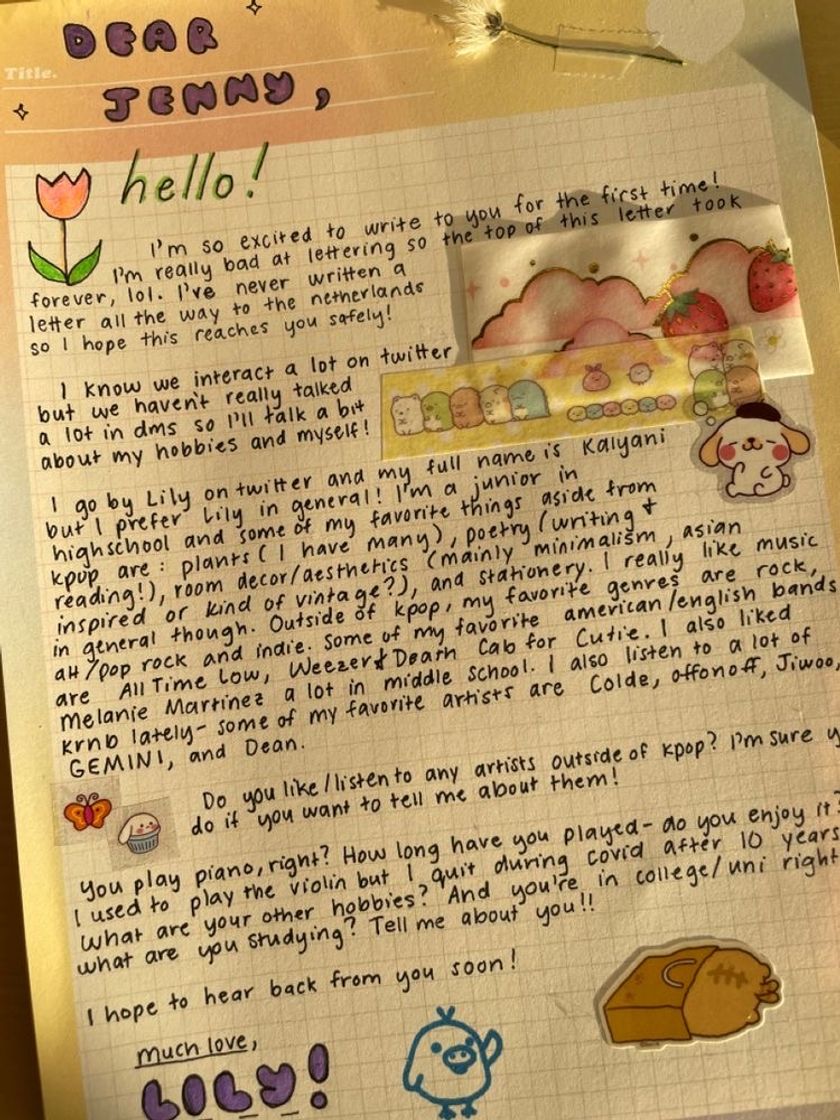 DEAR
Title.
JENNY,
hello!
I'm so excited to write to you for the first time!
I'm really bad at lettering so the top of this letter took
forever, lol. I've never written a
letter all the way to the netherlands
so I hope this reaches you safely!
I know we interact a lot on twitter
but we haven't really talked
a lot in dms so I'll talk a bit
about my hobbies and myself!
I go by Lily on twitter and my full name is Kalyani
but I prefer Lily in general! I'm a junior in
highschool and some of my favorite things aside from
kpop are: plants (I have many), poetry (writing &
reading!), room decor/aesthetics (mainly minimalism, asian
inspired or kind of vintage?), and stationery. I really like music
in general though. Outside of kpop, my favorite genres are rock,
alt/pop rock and indie. Some of my favorite american/english bands
are All Time Low, Weezer & Death Cab for Cutie. I also liked
Melanie Martinez a lot in middle school. I also listen to a lot of
krnb lately- some of my favorite artists are Colde, offonoff, Jiwoo,
GEMINI, and Dean.
Do you like/listen to any artists outside of kpop? I'm sure
do if you want to tell me about them!
You play piano, right? How long have you played- do you enjoy it?
I used to play the violin but I quit during covid after 10 years
What are your other hobbies? And you're in college/uni right
what are you studying? Tell me about you!!
I hope to hear back from you soon!
much love,
LILY!